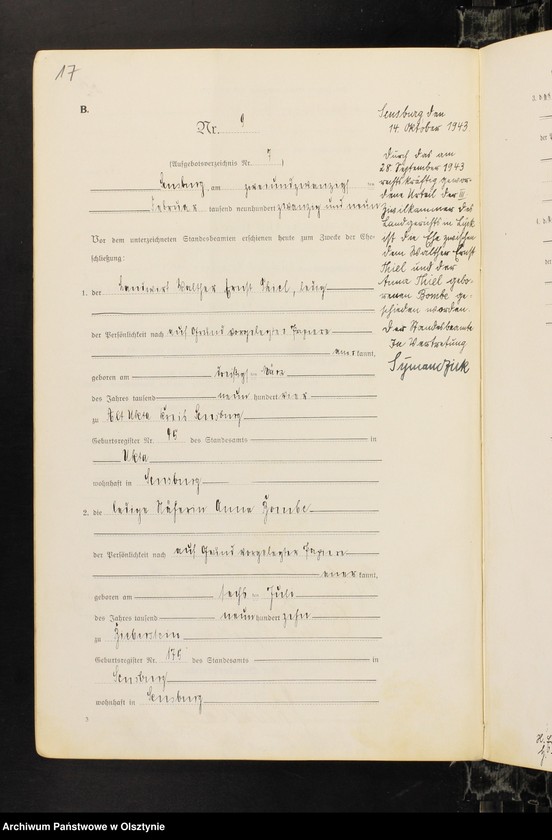 17
B.
Nr. 9
(Aufgebotsverzeichnis Nr. 7)
Sensburg, am zweiundzwanzigs ten
Februar tausend neunhundert zwanzig und neun
Vor dem unterzeichneten Standesbeamten erschienen heute zum Zwecke der Ehe-
schließung:
1. der Landwirt Walther Ernst Thiel, ledig
der Persönlichkeit nach auf Grund vorgelegter Papiere
aner kannt,
geboren am dreißigs ten März
des Jahres tausend neun hundert vier
zu Alt Ukta Kreis Sensburg
Geburtsregister Nr. 45 des Standesamts in
Ukta
wohnhaft in Sensburg
2. die ledige Näherin Anna Bombe
der Persönlichkeit nach auf Grund vorgelegter Papiere
aner kannt,
geboren am sechs ten Juli
des Jahres tausend neun hundert zehn
zu
Geburtsregister Nr. des Standesamts in
Sensburg
wohnhaft in Sensburg
Sensburg den
14. Oktober 1943
Durch das am
28. September 1943
rechtskräftig gewor-
dene Urteil der II.
Zivilkammer des
Landgerichts in Lyck
ist die Ehe zwischen
dem Walther Ernst
Thiel und der
Anna Thiel gebo-
renen Bombe ge-
schieden worden.
Der Standesbeamte
In Vertretung
Archiwum Państwowe w Olsztynie